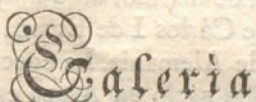 Galerìa